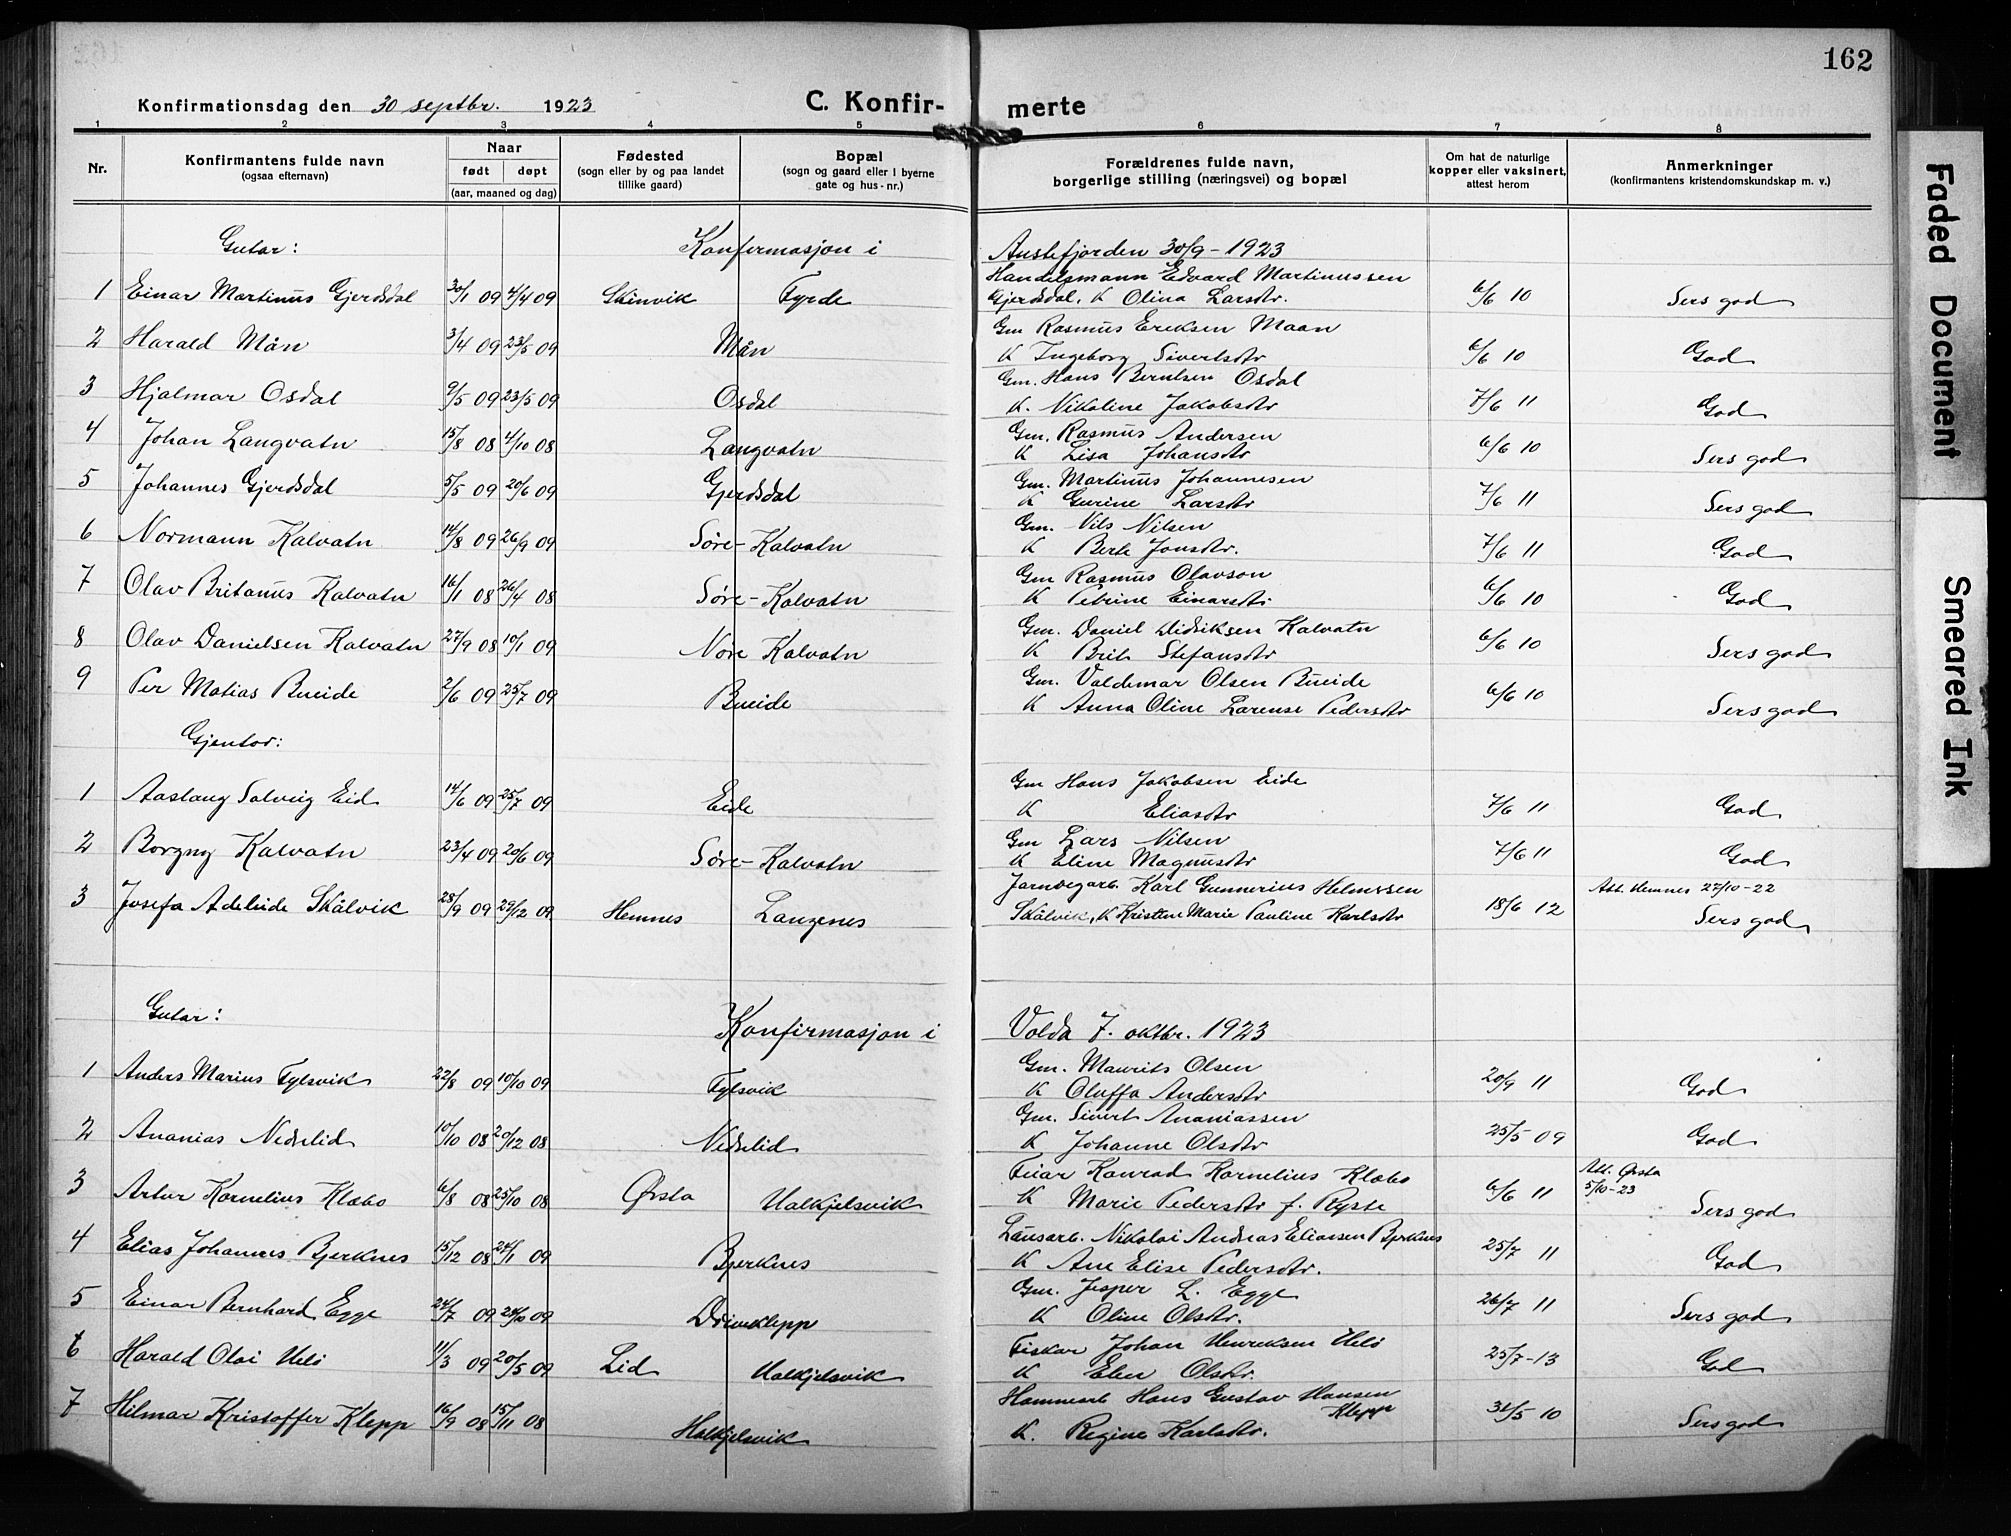 162
Konfirmationsdag den 30 septbr. 1923 C. Konfir- merte
1 2 3 4 5 6 7 8
Nr. Konfirmantens fulde navn (ogsaa efternavn) Naar født døpt (aar, maaned og dag) Fødested (sogn eller by og paa landet tillike gaard) Bopæl (sogn og gaard eller i byerne gate og hus-nr.) Forældrenes fulde navn, borgerlige stilling (næringsvei) og bopæl Om hat de naturlige kopper eller vaksinert, attest herom Anmerkninger (konfirmantens kristendomskundskap m. v.)
Gutar: Konfirmasjon i Austefjorden 30/9 - 1923
Handelsmann Edvard Martinussen
1 Einar Martinus Gjerdsdal 30/1 09 4/4 09 Skinvik Fyrde Gjerdsdal, K Olina Larsdtr. 6/6 10 Sers god
Gm Rasmus Eriksen Maan
2 Harald Mån 3/4 09 23/5 09 Mån K Ingeborg Sivertsdtr 6/6 10 God
Gm. Hans Berntsen Osdal
3 Hjalmar Osdal 9/5 09 23/5 09 Osdal K. Nikoline Jakobsdtr 7/6 11 God
Gm. Rasmus Andersen
4 Johan Langvatn 15/8 08 4/10 08 Langvatn K Lisa Johansdtr 6/6 10 Sers god
Gm. Martinus Johannesen
5 Johannes Gjerdsdal 5/5 09 20/6 09 Gjerdsdal K Gurine Larsdtr 7/6 11 Sers god
Gm. Nils Nilsen
6 Normann Kalvatn 14/8 09 26/9 09 Søre-Kalvatn K Berte Jonsdtr. 7/6 11 God
Gm Rasmus Olavson
7 Olav Britanus Kalvatn 16/1 08 26/4 08 Søre-Kalvatn K Petrine Einarsdtr 6/6 10 God
Gm. Daniel Didriksen Kalvatn
8 Olav Danielsen Kalvatn 27/9 08 10/1 09 Nøre Kalvatn K Brit Stefansdtr 6/6 10 Sers god
Gm. Valdemar Olsen Bueide
9 Per Matias Bueide 2/6 09 25/7 09 Bueide K Anna Oline Larense Pedersdtr 6/6 10 Sers god
Gjentor:
Gm Hans Jakobsen Eide
1 Aaslaug Solveig Eid 14/6 09 25/7 09 Eide K Eliasdtr 7/6 11 God
Gm Lars Nilsen
2 Borgny Kalvatn 23/4 09 20/6 09 Søre-Kalvatn K Eline Magnusdtr 7/6 11 God
Jarnvegarb. Karl Gunnerius Helmersen Att. Hemnes 27/10-22
3 Josefa Adeleide Skålvik 28/9 09 29/12 09 Hemnes Langenes Skålvik, K Kristine Marie Pauline Karlsdtr 18/6 12 Sers god
Gutar: Konfirmasjon i Volda 7. oktbr. 1923
Gm. Maurits Olsen
1 Anders Marius Fylsvik 22/8 09 10/10 09 Fylsvik K Oluffa Andersdtr 20/9 11 God
Gm. Sivert Ananiassen
2 Ananias Nedrelid 10/10 08 20/12 08 Nedrelid K Johanne Olsdtr 25/5 09 God
Feiar Konrad Kornelius Klæbo Att. Ørsta 5/10-23
3 Artur Kornelius Klæbo 6/8 08 25/10 08 Ørsta Halkjelsvik K Marie Pedersdtr f. Ryste 6/6 11 Sers god
Lausarb. Nikolai Andreas Eliassen Bjerknes
4 Elias Johannes Bjerknes 15/12 08 24/1 09 Bjerknes K Ane Elise Pedersdtr. 25/7 11 God
Gm. Jesper L. Egge
5 Einar Bernhard Egge 24/7 09 24/10 09 Driveklepp K Oline Olsdtr. 26/7 11 Sers god
Fiskar Johan Henriksen Helø
6 Harald Olai Helö 11/3 09 20/5 09 Lid Halkjelsvik K Elen Olsdtr. 25/7-13 God
Hammearb Hans Gustav Hansen Klepp
7 Hilmar Kristoffer Klepp 16/9 08 15/11 08 Halkjelsvik K. Regine Karlsdtr. 31/5 10 Sers god
Faded Document
Smeared Ink